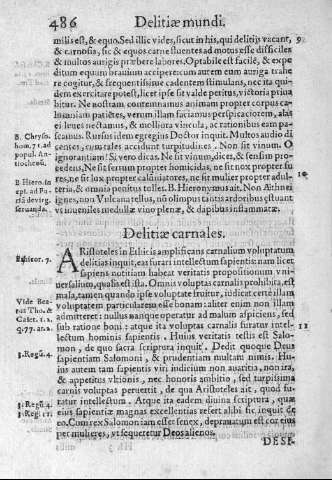 486 Delitiæ mundi.
milis est, & equo. Sed illic vides, sicut in his, qui delitijs vacant,
& carnosa, sic & equos carne fluentes ad motus esse difficiles
& multos aurigis præbere labores. Optabile est facilè, & expe
ditum equum brauium accipere: cum autem eum auriga trahe
re cogitur, & frequentissime cadentem stimulans, nec ita qui-
dem exercitare potest, licet ipse sit valde peritus, victoria priua
bitur. Ne nostram contemnamus animam propter corpus ca-
lumniam patientes, verum illam faciamus perspicatiorem, alas
ei leues iectamus, & molliora vincula, ac rationibus eam pa-
scamus. Rursus idem egregius Doctor inquit. Multos audio di
centes, cum tales accidunt turpitudines. Non sit vinum. O
ignorantiam! Si vero dicas. Ne sit vinum, dices, & sensim pro-
cedens, Ne sit ferrum propter homicidas, ne sit nox propter fu
res, ne sit lux propter calumniatores, ne sit mulier propter adul-
teria, & omnia penitus tolles. B. Hieronymus ait. Non Aethnei
ignes, non Vulcana tellus, nõ olimpus tantis ardoribus æstuant
vt iuueniles medullæ vino plenæ, & dapibus inflammatæ.
B. Chryso.
hom. 71. ad
popul. An-
tiochenũ.
B. Hiero. in
Delitiæ carnales.
ARistoteles in Ethicis amplificans carnalium voluptatum
delitias inquit, eas furari intellectum sapientis nam licet
sapiens notitiam habeat veritatis propositionum vni-
uersalium, qualis est ista. Omnis voluptas carnalis prohibita, est
mala, tamen quando ipse voluptate fruitur, iudicat cert è illam
voluptatem particularem esse bonam: aliter enim non illam
admitteret: nullus nanque operatur ad malum aspiciens, sed
sub ratione boni: atque ita voluptas carnalis furatur intel-
lectum hominis sapientis. Huius veritatis testis est Salo-
mon, de quo sacra scriptura inquit. Dedit quoque Deus
sapientiam Salomoni, & prudentiam multam nimis. Hu-
ius autem tam sapientis viri iudicium non auaritia, non ira,
& appetitus vltionis, nec honoris ambitio, sed turpissima
carnis voluptas peruertit, de qua Aristoteles ait, quod fu-
ratur intellectum. Atque ita eadem diuina scriptura, quæ
eius sapientiæ magnas excellentias refert alibi sic inquit de
eo. Cum rex Salomon iam esset senex, deprauatum est cor eius
per mulieres, vt sequeretur Deos alienos.
Vide Bea-
tus Tho. &
Caiet. 1. 2.
q. 77. ar. 2.
3. Regũ. 4.
3. Regũ. 4.
3. Reg. 11.
9
10
11
DESI-